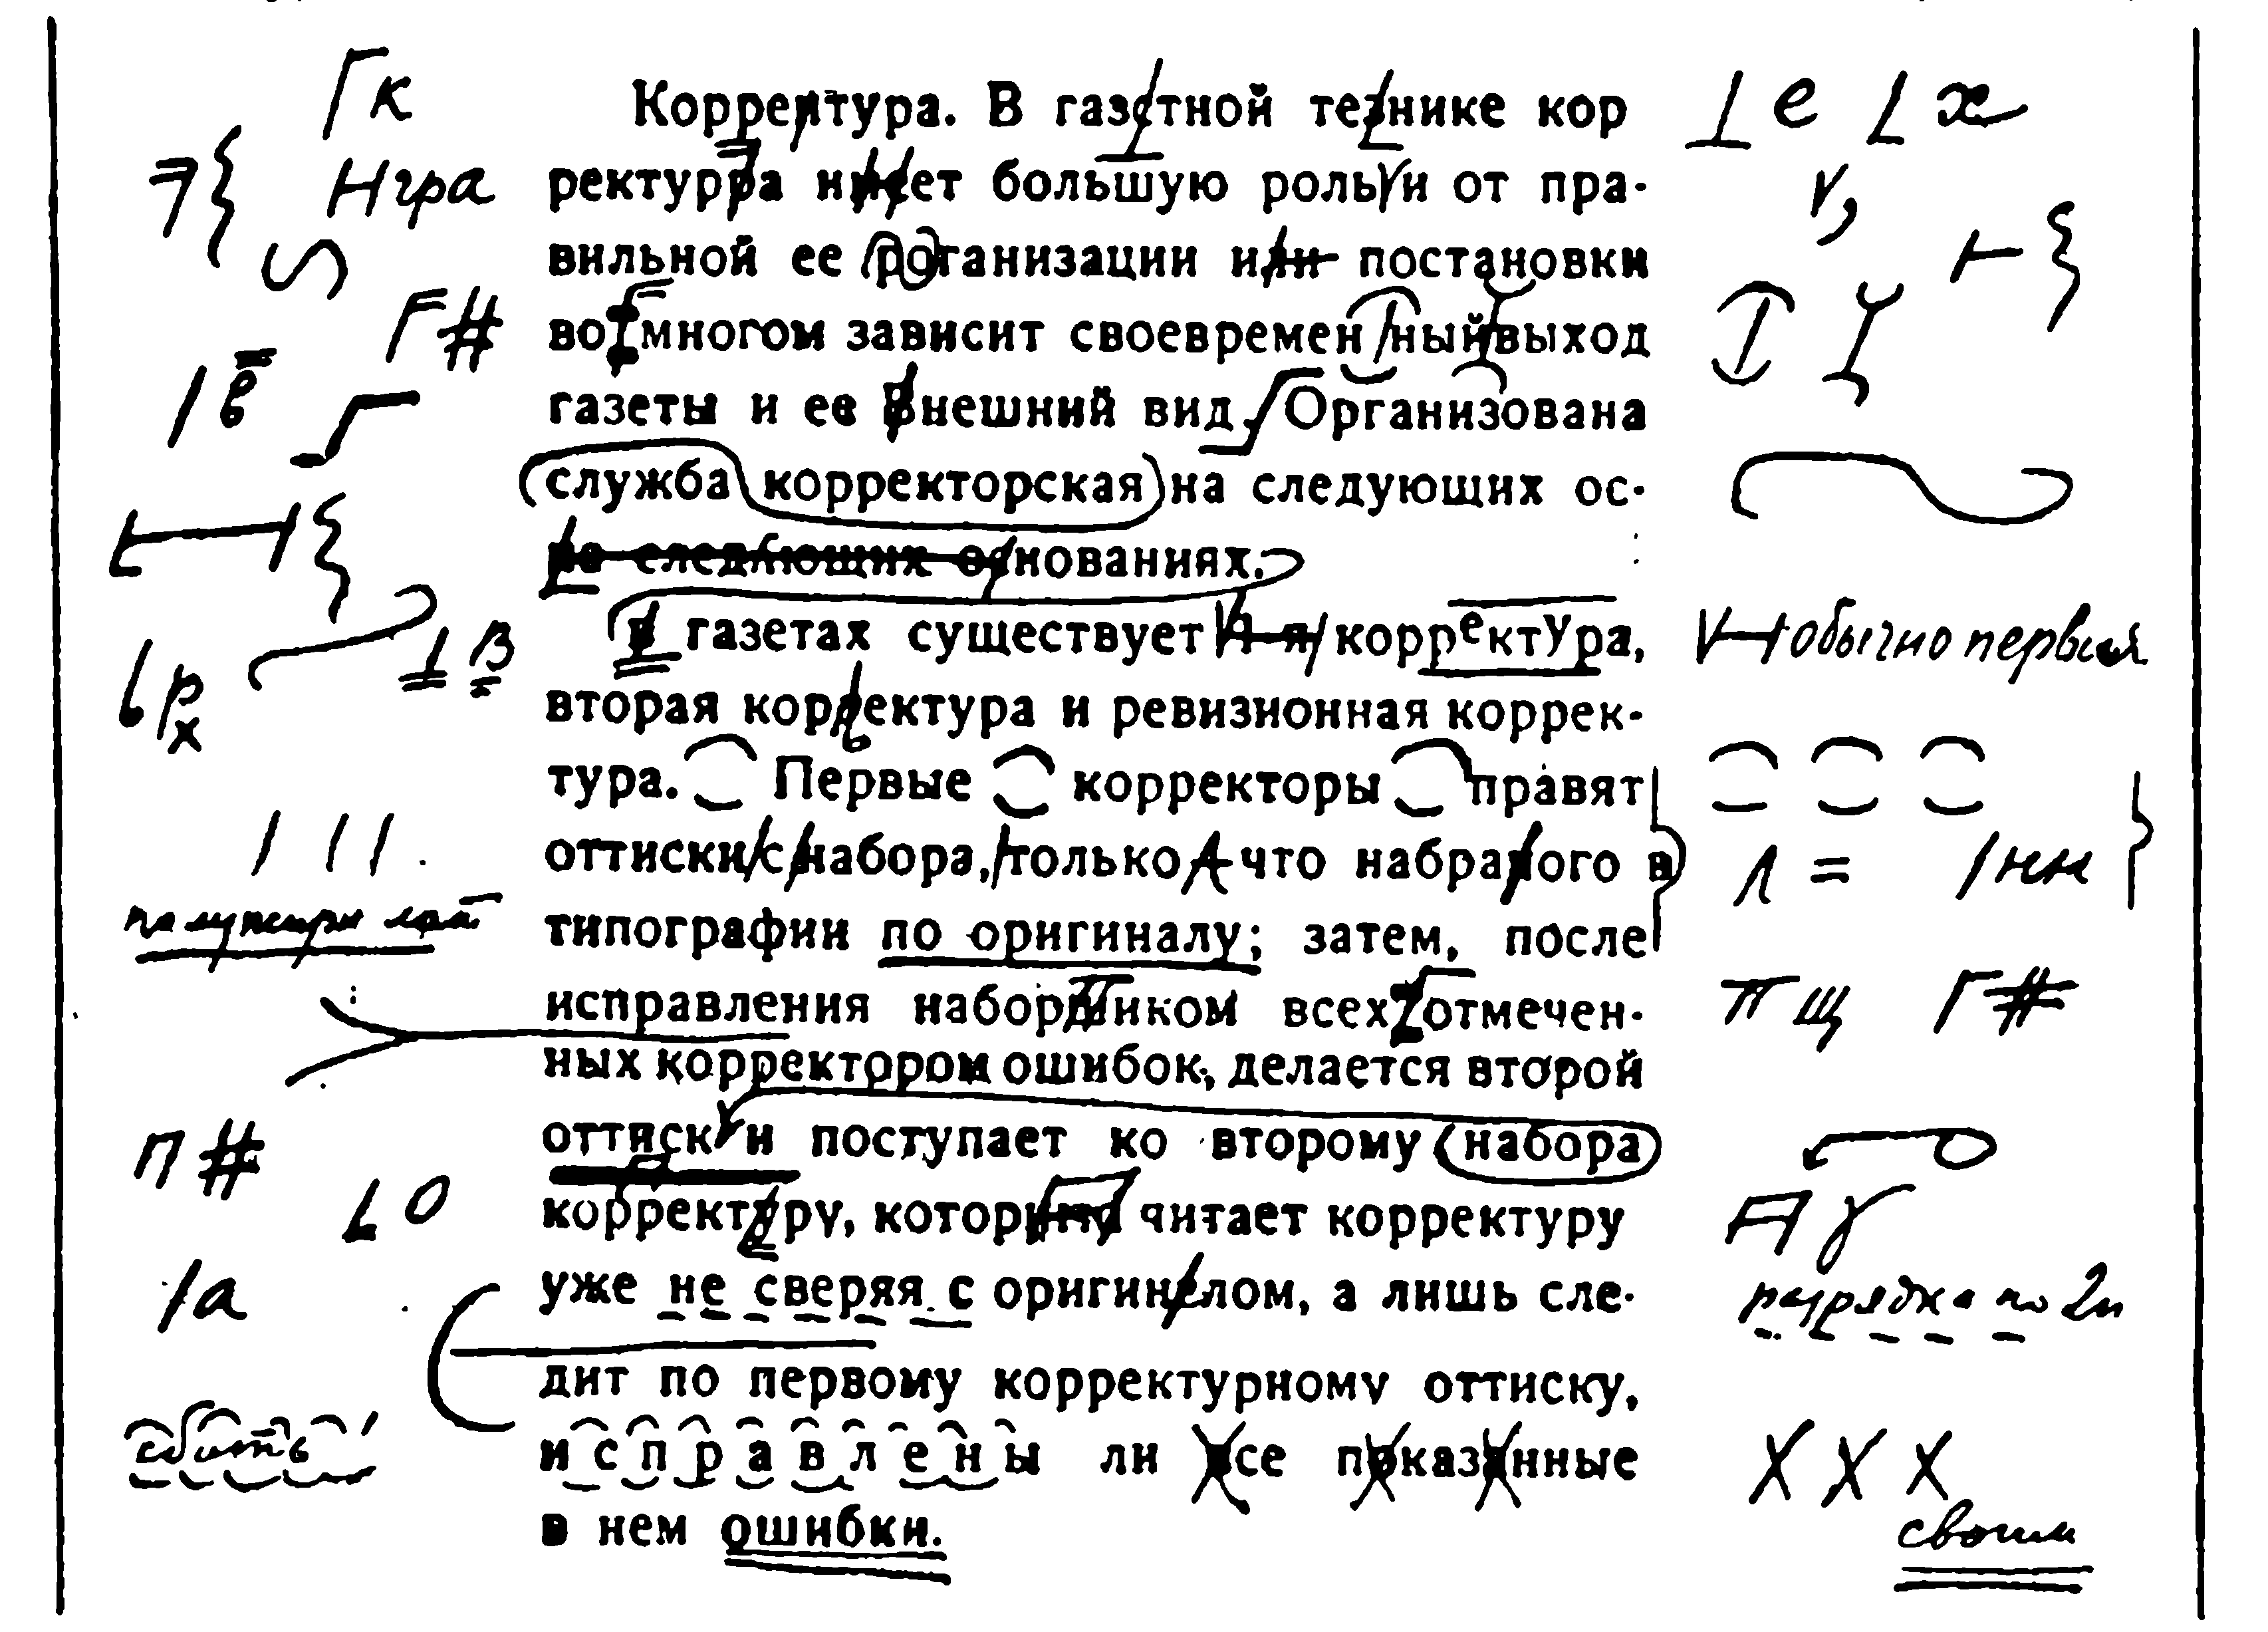 Г к Корректура. В газетной технике кор ⊥ е х
Н гра ректурра имеет большую роль и от пра-
вильной ее роганизации или постановки
Г # во многом зависит своевременный выход
в газеты и ее Внешний вид. Организована
служба корректорская на следующих ос-
на следующих основаниях.
в В газетах существует корректура, обычно первая
р вторая корректура и ревизионная коррек-
тура. Первые корректоры правят
оттиски с набора, только что набраного в = нн
типографии по оригиналу; затем, после
исправления наборщиком всех отмечен- щ Г #
ных корректором ошибок, делается второй
# оттиск и поступает ко второму набора
о корректуру, который читает корректуру
а уже не сверяя с оригиналом, а лишь сле- разрядка по 2п
дит по первому корректурному оттиску,
сбить исправлены ли все показанные Х Х Х
в нем ошибки.